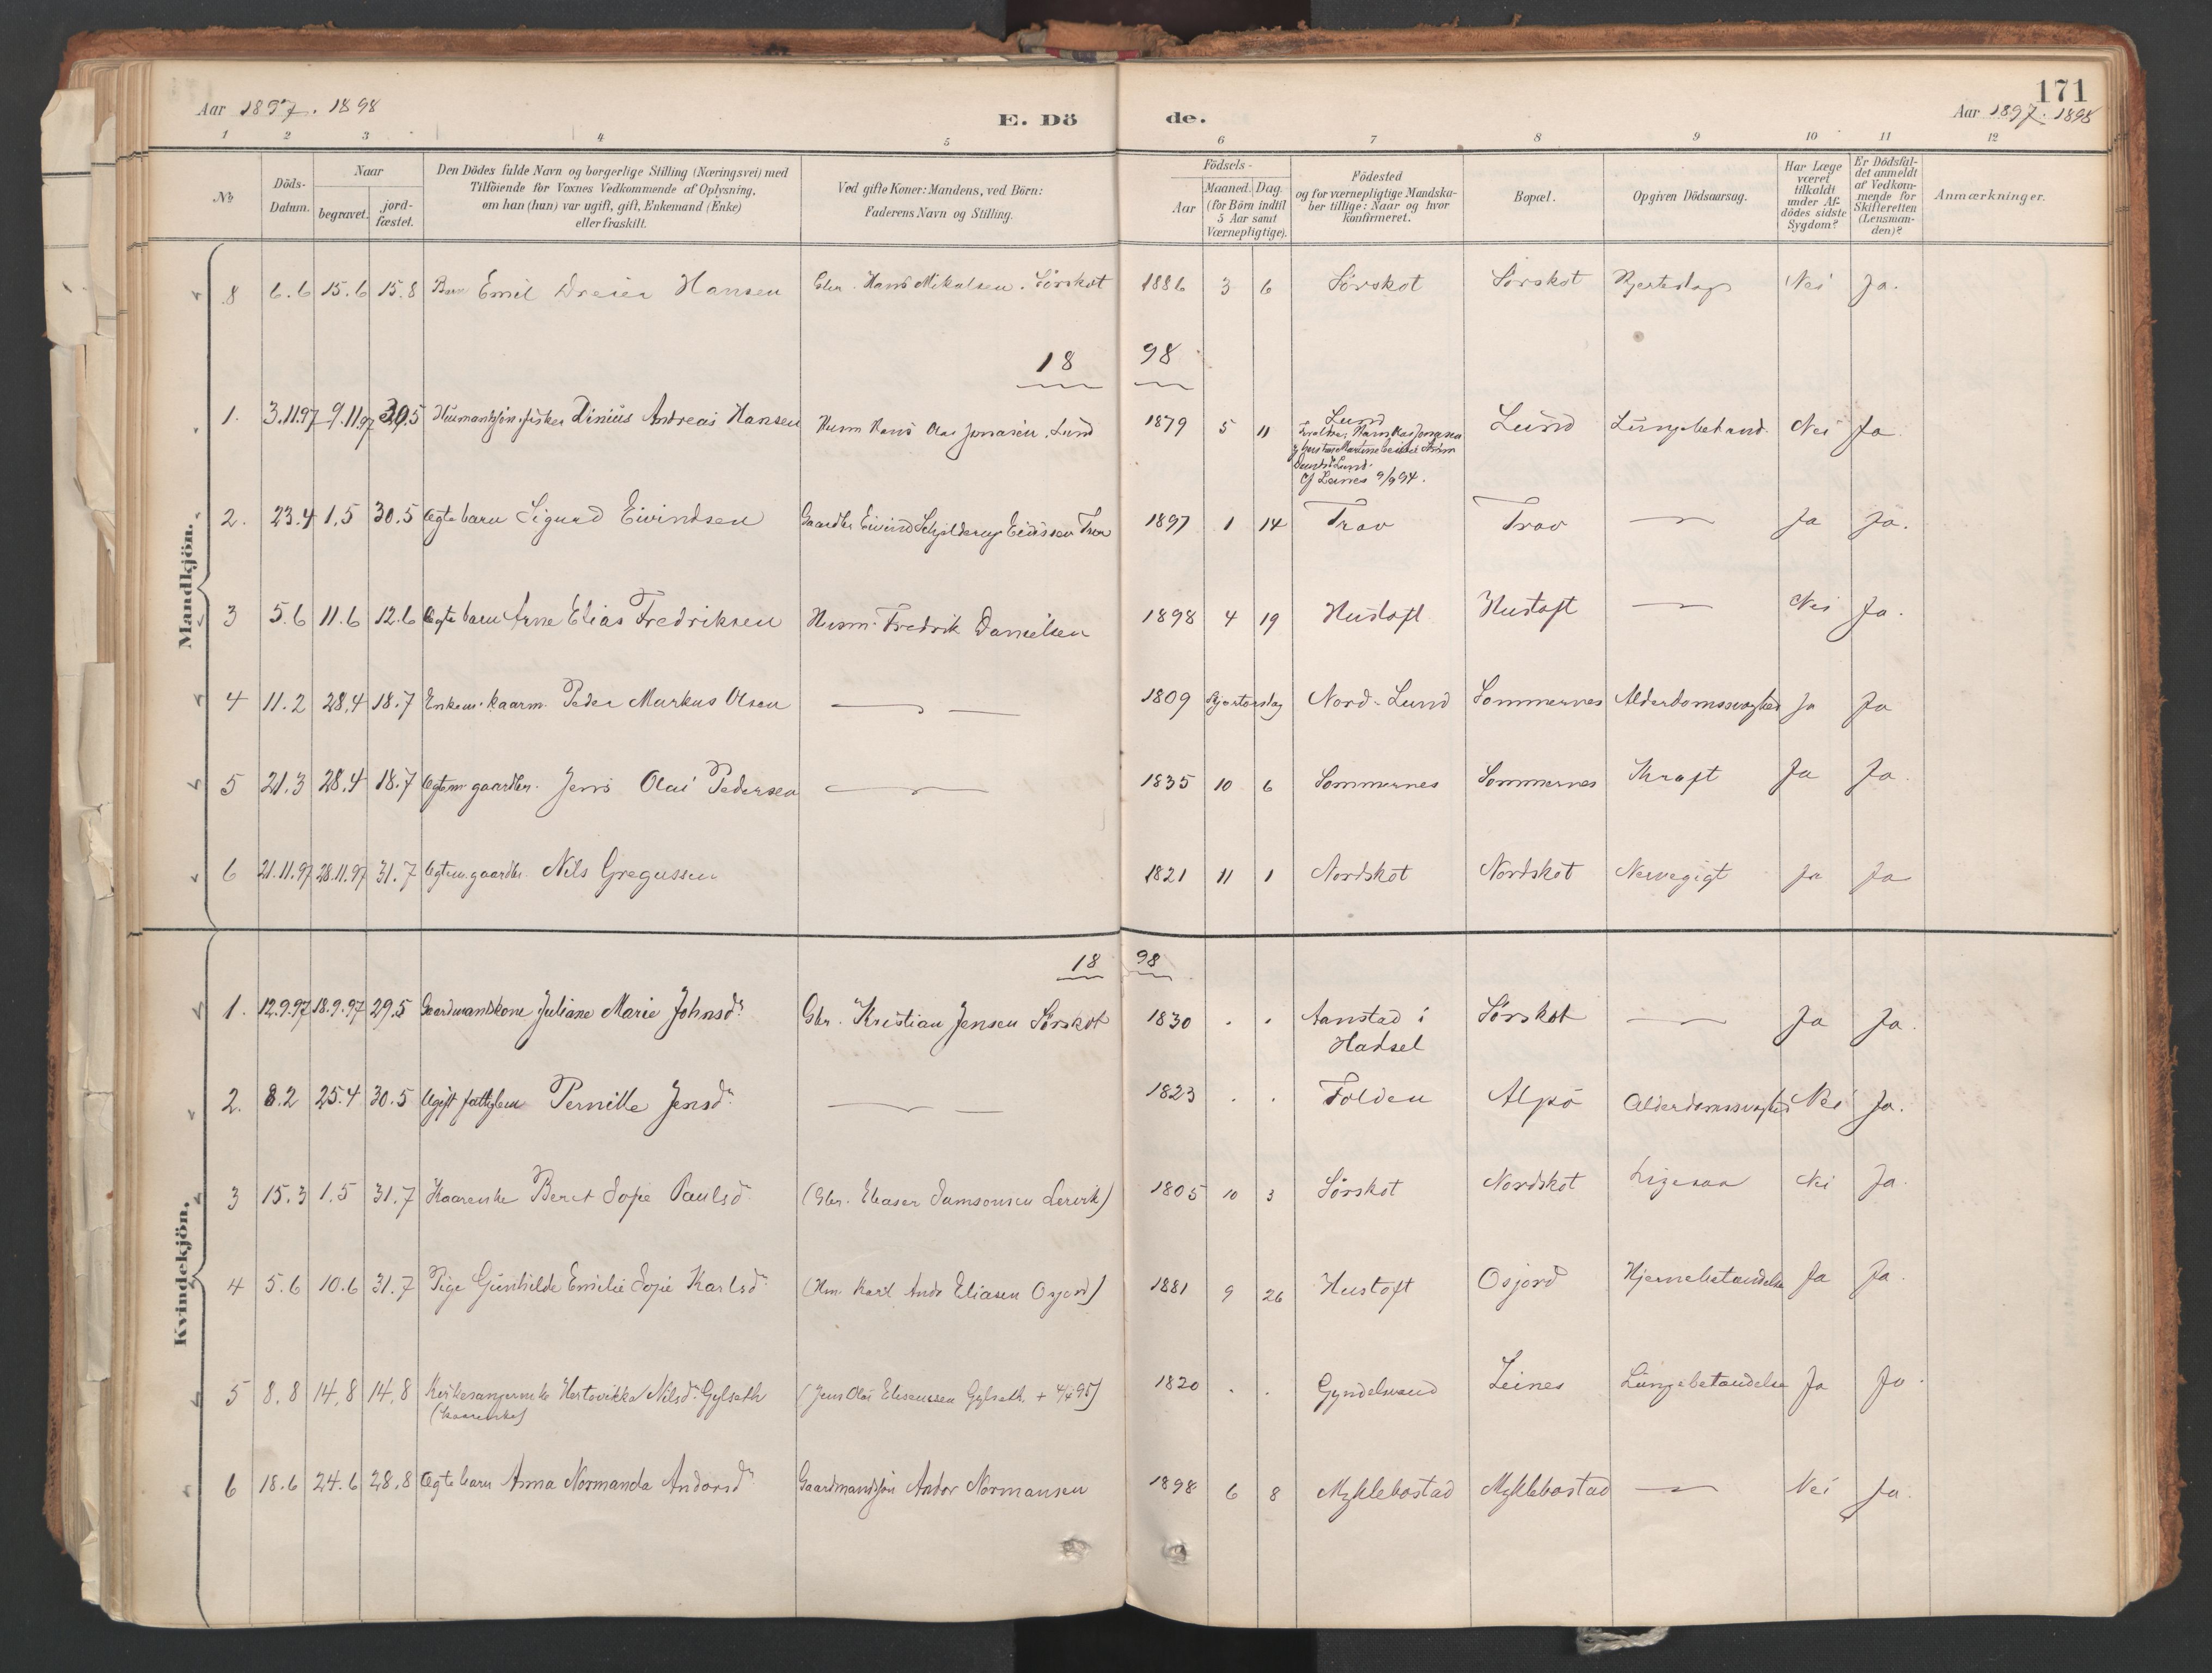 171
Aar 1897. 1898
E. Dö de.
Aar 1897. 1898
1 2 3 4 5 6 7 8 9 10 11 12
No
Döds-Datum.
Naar
begravet.
jord-fæstet.
Den Dödes fulde Navn og borgerlige Stilling (Næringsvei) med
Tilföiende for Voxnes Vedkommende af Oplysning,
om han (hun) var ugift, gift, Enkemand (Enke)
eller fraskilt.
Ved gifte Koner: Mandens, ved Börn:
Faderens Navn og Stilling.
Födsels-
Aar
Maaned. Dag.
(for Börn indtil
5 Aar samt
Værnepligtige).
Födested
og for værnepligtige Mandska-
ber tillige: Naar og hvor
konfirmeret.
Bopæl.
Opgiven Dödsaarsag.
Har Læge
været
tilkaldt
under Af-
dödes sidste
Sygdom?
Er Dödsfal-
det anmeldt
af Vedkom-
mende for
Skifteretten
(Lensman-
den)?
Anmærkninger.
Mandkjön.
8 6.6 15.6 15.8 Barn Emil Dreier Hansen Gbr. Hans Mikalsen. Sörskot 1886 3 6 Sörskot Sörskot Hjerteslag Nei Ja.
18 98
1. 3.11.97 9.11.97 30.5 Husmandssön, fisker Linius Andreas Hansen Husm Hans Olai Jonasen, Lund 1879 5 11 Lund Lund Lungebetænd. Nei Ja
Lund.
Leines 9/9 94.
2. 23.4 1.5 30.5 Ægte barn Sigurd Eivindsen Gaardbr Eivind Schjelderup Eriksen Trav 1897 1 14 Trav Trav — Ja Ja.
3 5.6 11.6 12.6 Ægte barn Arne Elias Fredriksen Husm. Fredrik Danielsen 1898 4 19 Hustoft Hustoft — Nei Ja.
4 11.2 28.4 18.7 Enkem. kaarm. Peder Markus Olsen — — 1809 Skjærtorsdag Nord-Lund Sommernes Alderdomssvaghed Ja Ja
5 21.3 28.4 18.7 Ægtem. gaardbr. Jens Olai Pedersen — 1835 10 6 Sommernes Sommernes Kræft Ja Ja.
6 21.11.97 28.11.97 31.7 Ægtem. gaardbr. Nils Gregussen 1821 11 1 Nordskot Nordskot Nervegigt Ja Ja
Kvindekjön.
18 98
1. 12.9.97 18.9.97 29.5 Gaardmandskone Juliane Marie Johnsdr. Gbr. Kristian Jensen Sörskot 1830 . . Aanstad i Hadsel Sörskot — Ja Ja.
2. 8.2 25.4 30.5 Ugift fattiglem Pernille Jensdr. — — 1823 . . Folden Alpö Alderdomssvaghed Nei Ja.
3 15.3 1.5 31.7 Kaarenke Beret Sofie Paulsd. (Gbr. Eleaser Samsonsen Lervik) 1805 10 3 Sörskot Nordskot Ligesaa Nei Ja.
4 5.6 10.6 31.7 Pige Gunhilde Emilie Sofie Karlsdr. (Hm. Karl Andr Eliasen Osjord) 1881 9 26 Hustoft Osjord Hjernebetændelse Ja Ja.
5 8.8 14.8 14.8 Kirkesangerenke Hertovikka Nilsdr. Gylseth (Jens Olai Elisenssen Gylseth. + 4/4 95) 1820 . . Gyndelsvand Leines Lungebetændelse Ja Ja.
(kaarenke)
6 18.6 24.6 28.8 Ægte barn Anna Normanda Andorsdr Gaardmandssön Andor Normansen 1898 6 8 Myklebostad Myklebostad — Nei Ja.